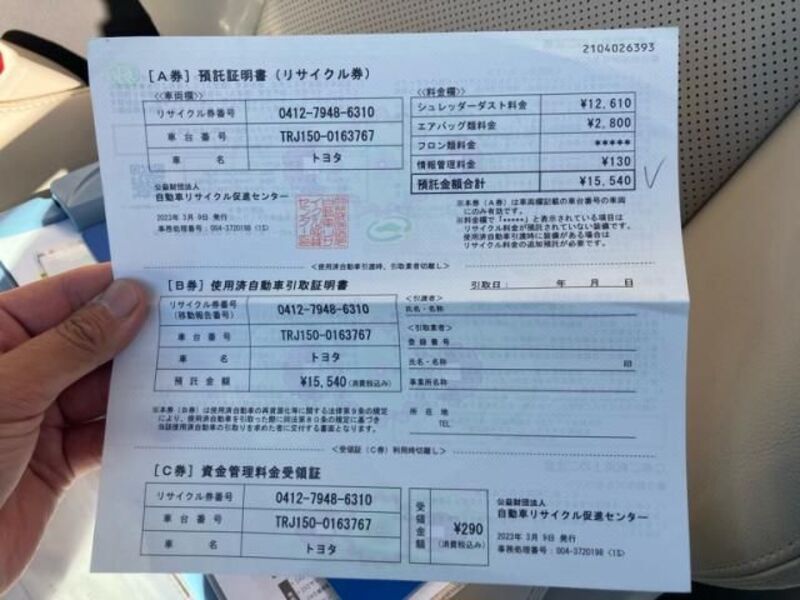 2104026393
[A券] 預託証明書 (リサイクル券)
<<車両欄>>
リサイクル券番号 0412-7948-6310
車台番号 TRJ150-0163767
車名 トヨタ
<<料金欄>>
シュレッダーダスト料金 ¥12,610
エアバッグ類料金 ¥2,800
フロン類料金 *****
情報管理料金 ¥130
預託金額合計 ¥15,540
公益財団法人
自動車リサイクル促進センター
2023年 3月 9日 発行
事務処理番号:004-3720198 (1S)
※本券(A券)は車両欄記載の車台番号の車両
にのみ有効です。
※料金欄で「*****」と表示されている項目は
リサイクル料金が預託されていない装備です。
使用済自動車引渡時に装備がある場合は
リサイクル料金の追加預託が必要です。
<使用済自動車引渡時、引取業者切離し>
[B券] 使用済自動車引取証明書
引取日: 年 月 日
リサイクル券番号
(移動報告番号) 0412-7948-6310
車台番号 TRJ150-0163767
車名 トヨタ
預託金額 ¥15,540 (消費税込み)
<引渡者>
氏名・名称
<引取業者>
登録番号
氏名・名称 印
事業所名称
所在地
TEL
※本券(B券)は使用済自動車の再資源化等に関する法律第9条の規定
により、使用済自動車を引取った際に同法第80条の規定に基づき
当該使用済自動車の引取りを求めた者に交付する書面となります。
<受領証(C券)利用時切離し>
[C券] 資金管理料金受領証
リサイクル券番号 0412-7948-6310
車台番号 TRJ150-0163767
車名 トヨタ
受領金額 ¥290
(消費税込み)
公益財団法人
自動車リサイクル促進センター
2023年 3月 9日 発行
事務処理番号:004-3720198 (1S)